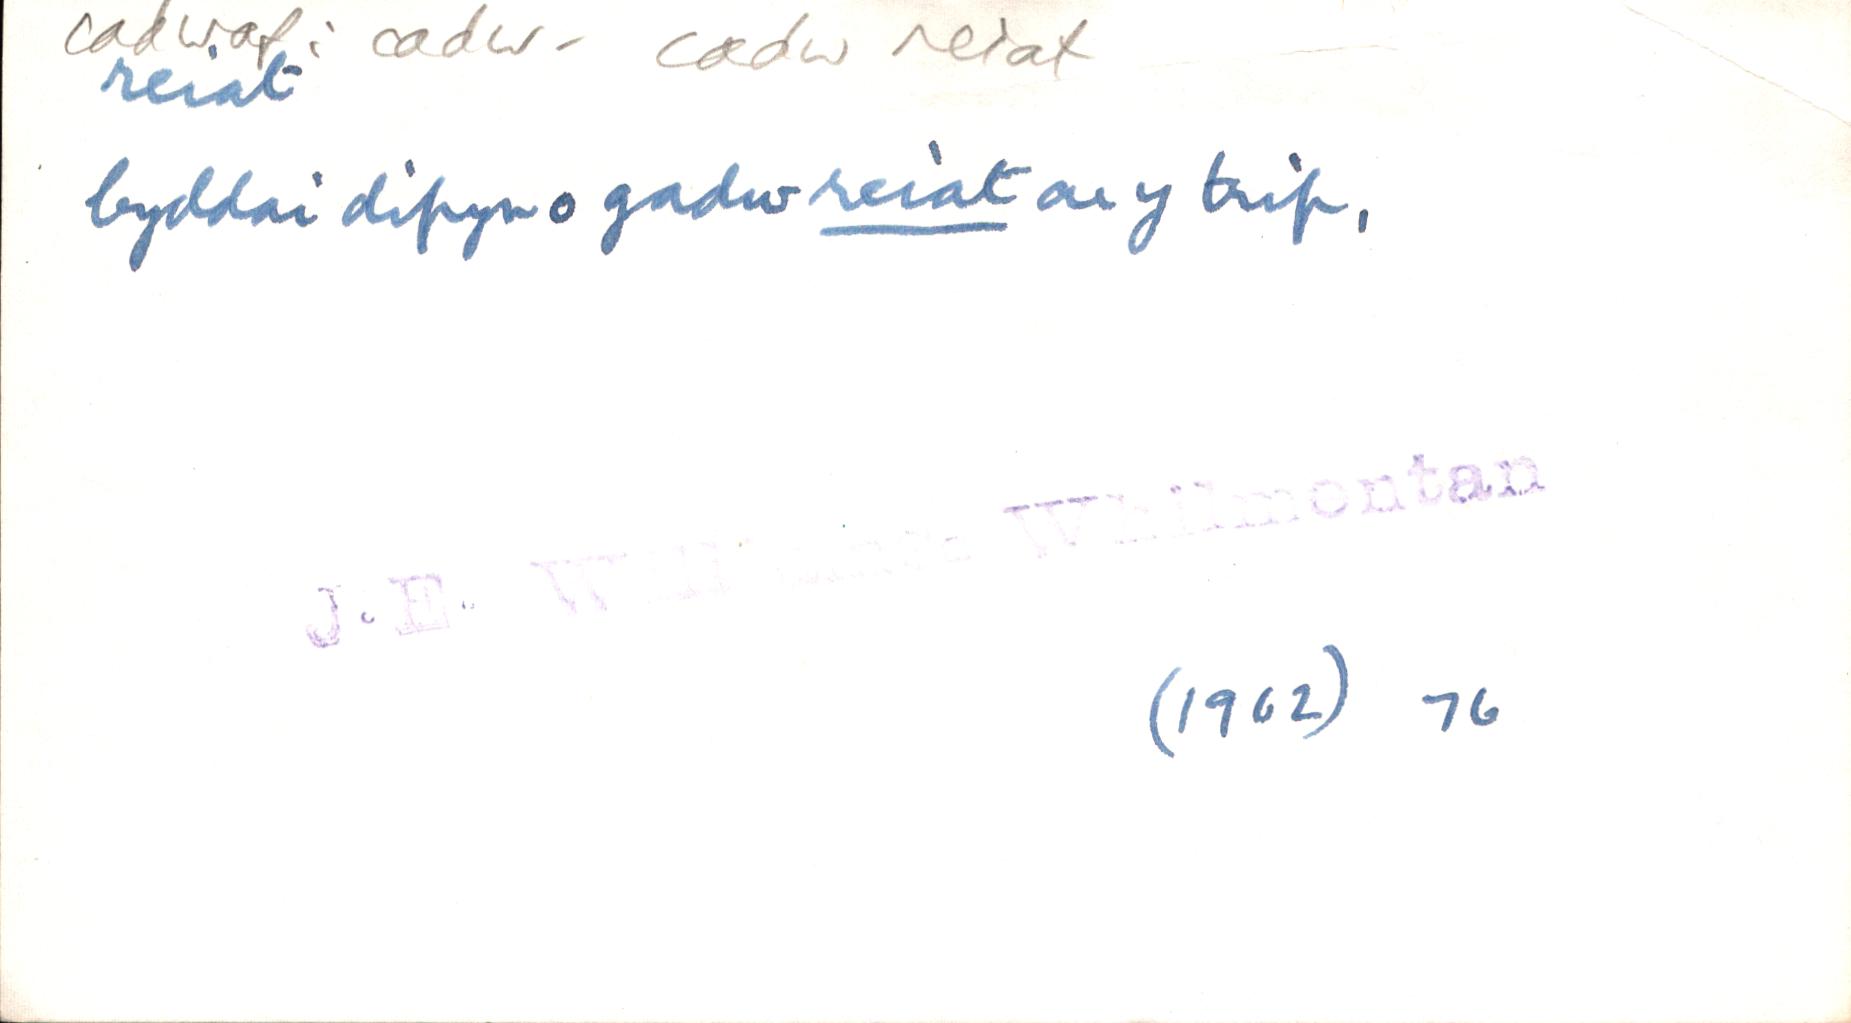 cadwaf: cadw- cadw reiat
reiat
byddai dipyn o gadw reiat ar y trip,
J.E. Williams. Whilmentan
(1962) 76